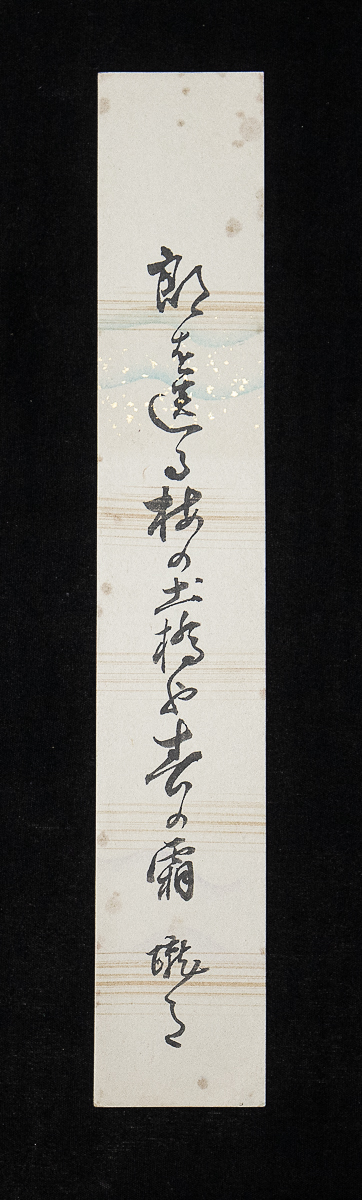 郎を送る梅の土橋や春の霜